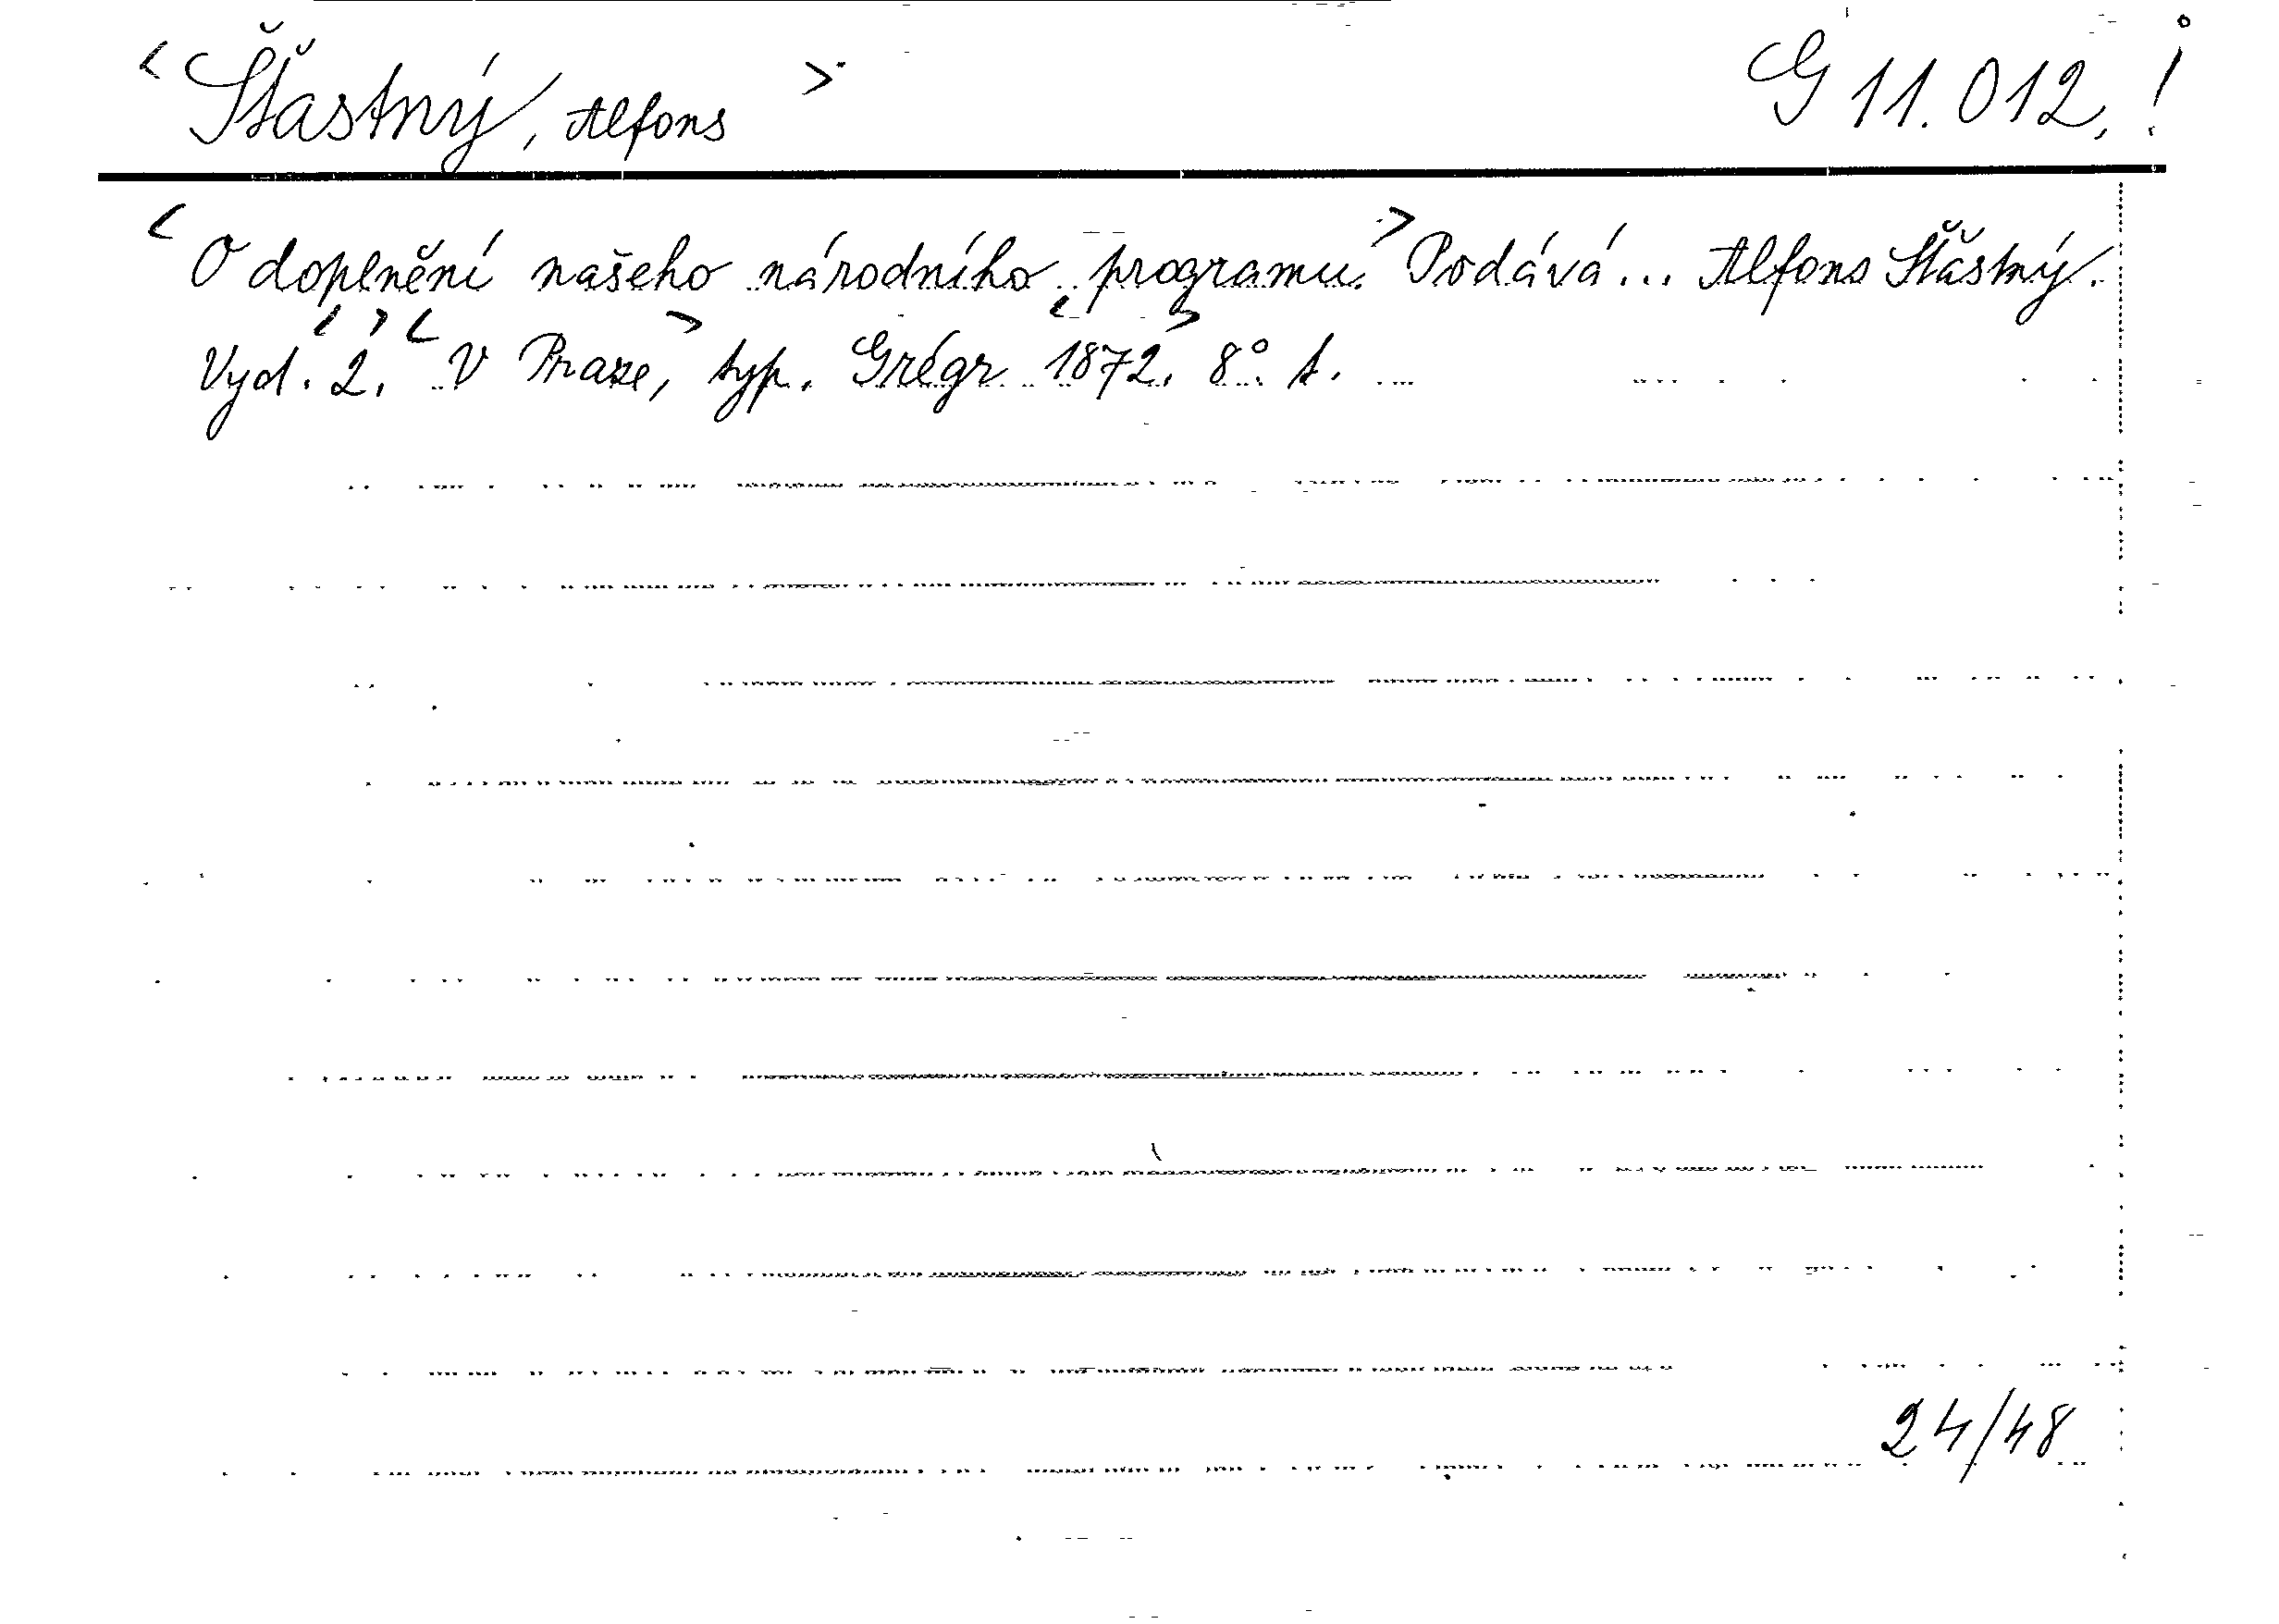 <Šťastný, Alfons> G 11.012.!
<O doplnění našeho národního programu.> Podává... Alfons Šťastný.
Vyd. <2.> <V Praze,> typ. Grégr <1872.> 8°. s.
24/48